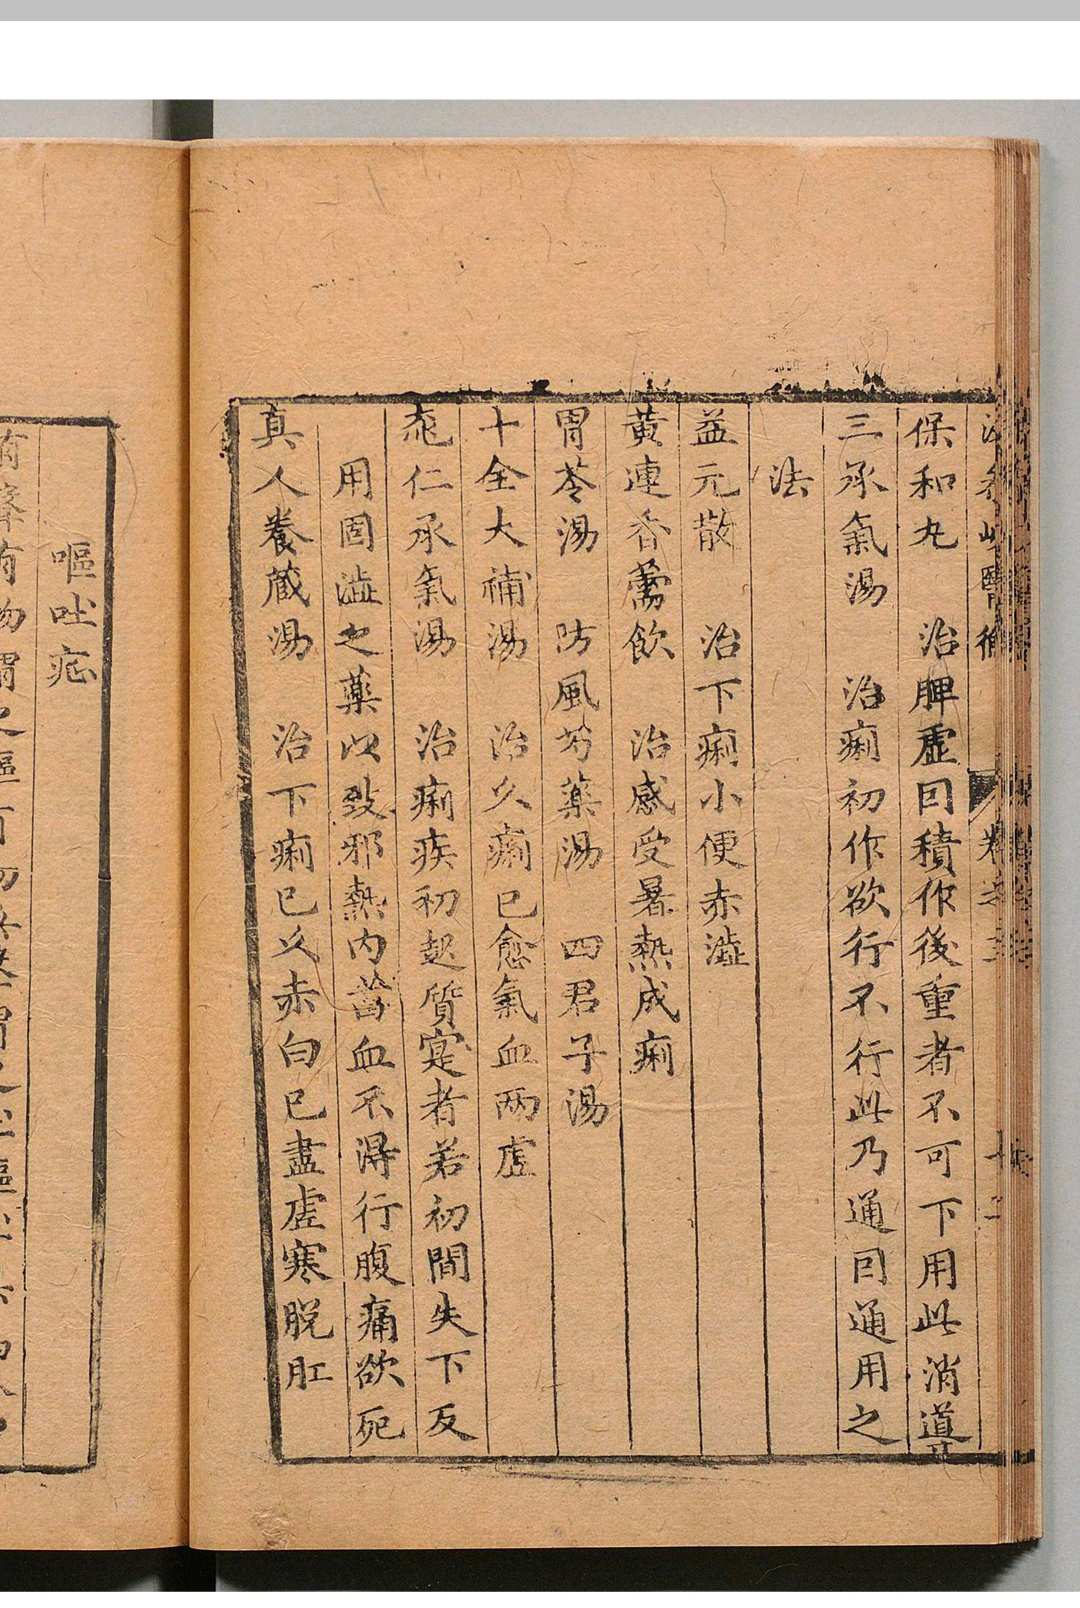 保和丸　治脾虛囙積作後重者不可下用此消導
三承氣湯　治痢初作欲行不行此乃通囙通用之
法
益元散　治下痢小便赤澁
黄連香薷飲　治感受暑熱成痢
胃苓湯　防風芍藥湯　四君子湯
十全大補湯　治久痢已愈氣血两虛
桃仁承氣湯　治痢疾初起質寔者若初間失下反
用固澁之藥以致邪熱内蓄血不得行腹痛欲死
真人養臓湯　治下痢已久赤白已盡虛寒脱肛
嘔吐症